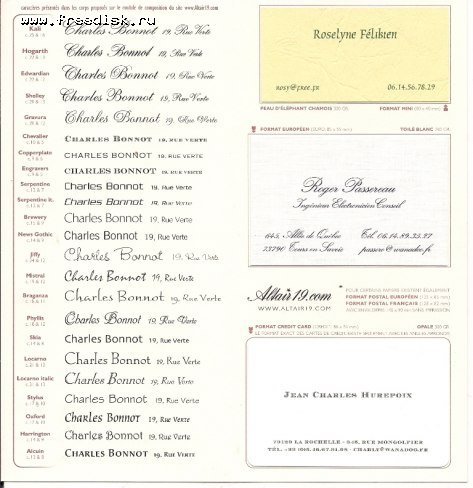 caractères présentés dans les corps proposés sur le module de composition du site www.Altair19.com
www.freedisk.ru
Kali
Charles Bonnot 19, Rue Verte
Hogarth
Charles Bonnot 19, Rue Verte
Edwardian
Charles Bonnot 19, Rue Verte
Shelley
Charles Bonnot 19, Rue Verte
Gravura
Charles Bonnot 19, Rue Verte
Chevalier
CHARLES BONNOT 19, RUE VERTE
Copperplate
CHARLES BONNOT 19, RUE VERTE
Engravers
CHARLES BONNOT 19, RUE VERTE
Serpentine
Charles Bonnot 19, Rue Verte
Serpentine it.
Charles Bonnot 19, Rue Verte
Brewery
Charles Bonnot 19, Rue Verte
News Gothic
Charles Bonnot 19, Rue Verte
Jiffy
Charles Bonnot 19, Rue Verte
Mistral
Charles Bonnot 19, Rue Verte
Braganza
Charles Bonnot 19, Rue Verte
Phyllis
Charles Bonnot 19, Rue Verte
Skia
Charles Bonnot 19, Rue Verte
Locarno
Charles Bonnot 19, Rue Verte
Locarno italic
Charles Bonnot 19, Rue Verte
Stylus
Charles Bonnot 19, Rue Verte
Oxford
Charles Bonnot 19, Rue Verte
Harrington
Charles Bonnot 19, Rue Verte
Alcuin
CHARLES BONNOT 19, RUE VERTE
Roselyne Félixien
rosy@free.fr 06.14.56.78.29
PEAU D'ÉLÉPHANT CHAMOIS FORMAT MINI
FORMAT EUROPÉEN TOILÉ BLANC
Roger Passereau
Ingénieur Electronicien Conseil
645, Allée de Québec Tél. 06.18.89.35.27
73790 Tours en Savoie passero@wanadoo.fr
Altair19.com
WWW.ALTAIR19.COM
POUR CERTAINS PAPIERS EXISTENT ÉGALEMENT
FORMAT POSTAL EUROPÉEN
FORMAT POSTAL FRANÇAIS
FORMAT CREDIT CARD OPALE
JEAN CHARLES HUREPOIX
79129 LA ROCHELLE - 945, RUE MONGOLFIER